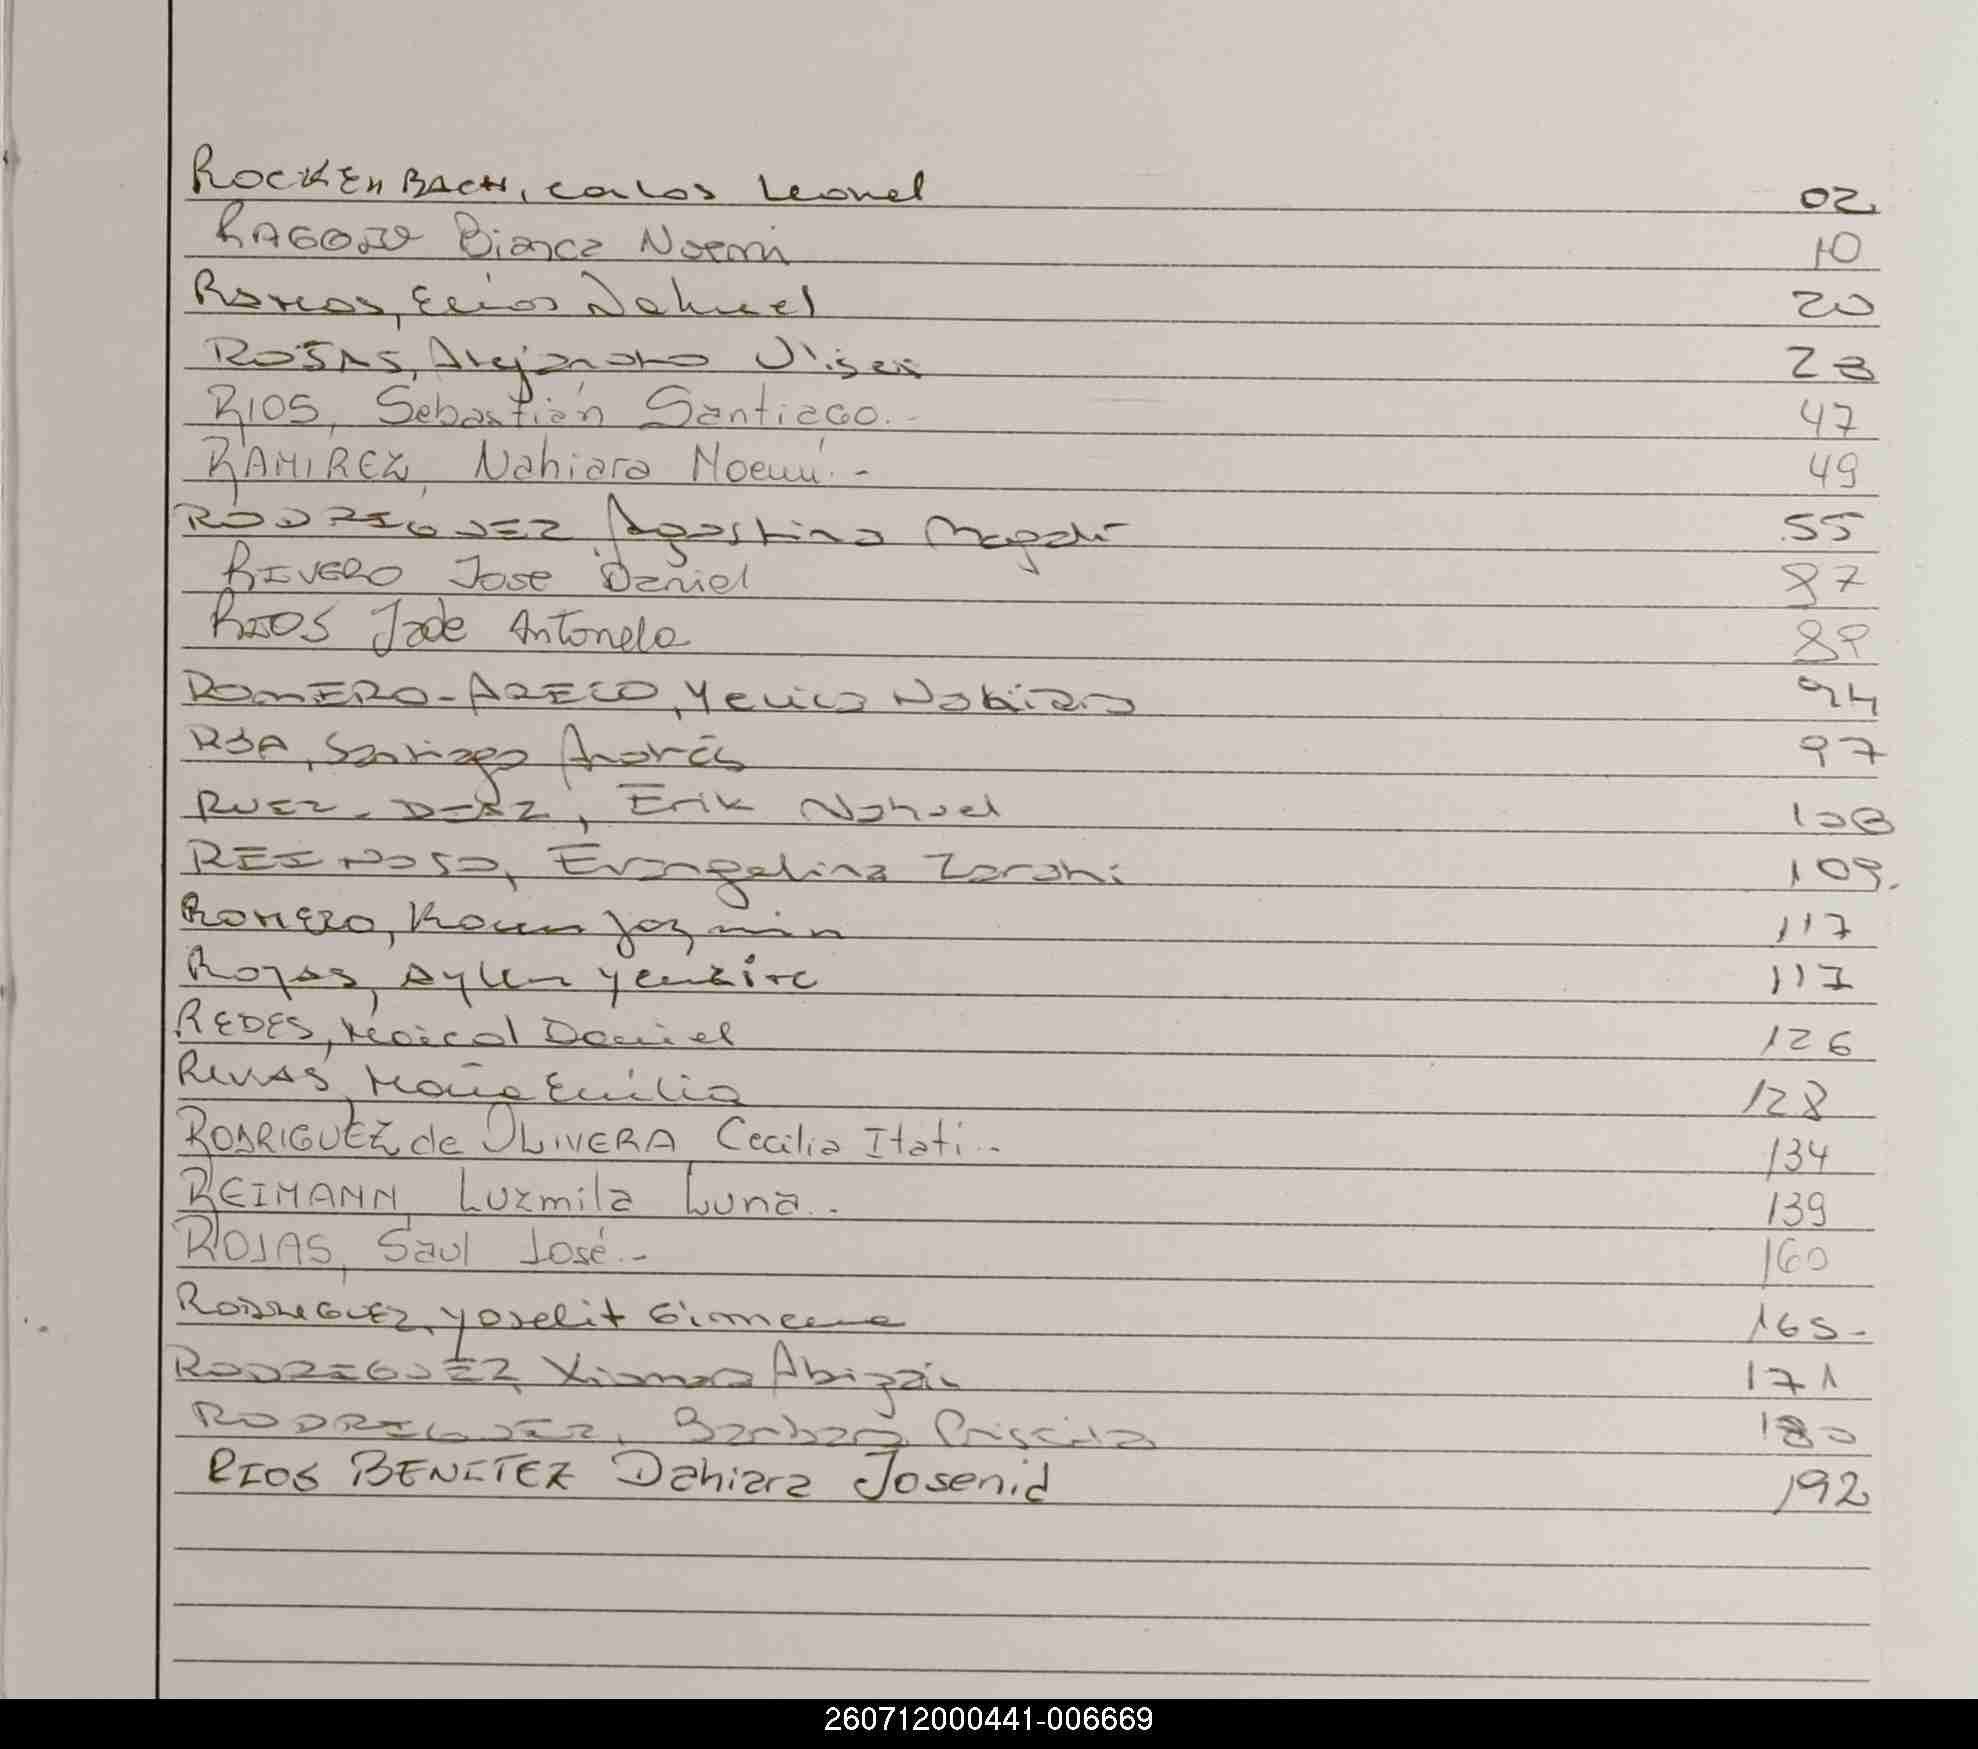 ROCKENBACH, Carlos Leonel 02
RAGOZO Bianca Noemi 10
Ramos, Elias Nahuel 20
ROJAS, Alejandro Ulises 28
RIOS, Sebastián Santiago.- 47
RAMIREZ, Nahiara Noemí.- 49
RODRIGUEZ Agostina Magalí 55
RIVERO Jose Daniel 87
RIOS Jade Antonela 89
ROMERO-ARECO, Yenica Nahiara 94
ROA, Santiago Andrés 97
RUEZ-DIAZ, Erik Nahuel 108
REINOSO, Evangelina Zarahi 109.
ROMERO, Rocío Jazmin 117
Rojas, Aylen 117
REDES, Maicol Daniel 126
RIVAS, María Emilia 128
RODRIGUEZ de OLIVERA Cecilia Itati.- 134
REIMANN, Luzmila Luna.- 139
ROJAS, Saul José.- 160
RODRIGUEZ, Yoselit Gimena 165-
RODRIGUEZ, Xiomara Abigail 171
RODRIGUEZ, Barbara Priscila 180
RIOS BENITEZ Dahiara Josenid 192
260712000441-006669